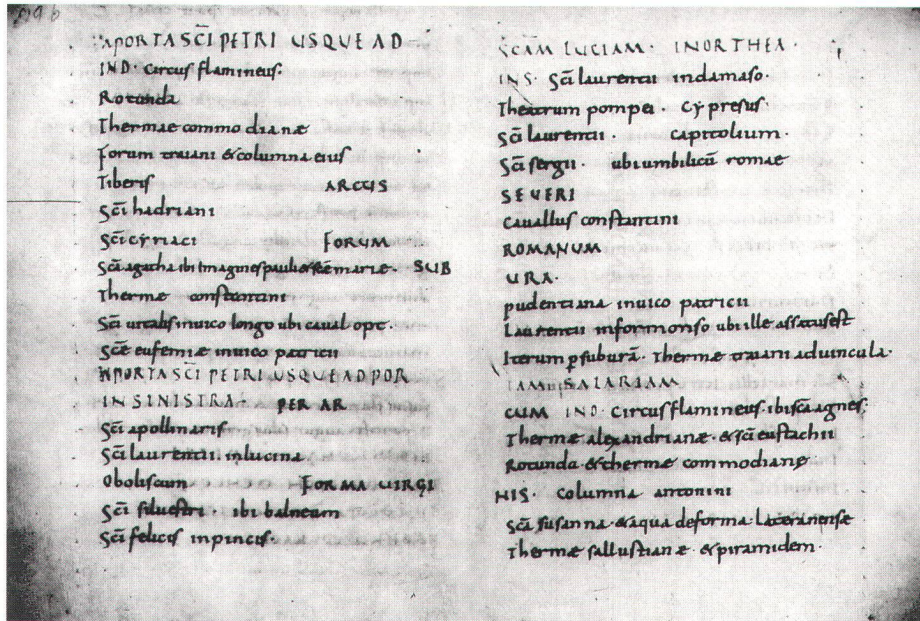 A PORTA SCI PETRI USQUE AD
IND. Circus flamineus:
Rotunda
Thermae commodianæ
forum traiani & columna eius
Tiberis ARCUS
Sci hadriani
Sci cyriaci FORUM
Scā agatha ibi imagines pauli & scē mariæ. SUB
Thermæ constantini
Sci uitalis in uico longo ubi caual opt.
Scē eufemiæ in uico patricii
A PORTA SCI PETRI USQUE AD POR
IN SINISTRA PER AR
Sci apollinaris
Sci laurentii in lucina
Oboliscum FORMA UIRGI
Sci siluestri ibi balneum
Sci felicis in pincis.
SCAM LUCIAM. IN ORTHEA.
INS. Sci laurentii in damaso.
Theatrum pompei Cypresus.
Sci laurentii. capitolium.
Sci sergii. ubi umbilicū romae
SEVERI
Cauallus constantini
ROMANUM
URA.
pudentiana in uico patricii
Laurentii in formonso ubi ille assatus est
Iterum p suburā. Thermæ traiani ad uincula.
TAM SALARIAM
CUM IND. Circus flamineus. ibi scā agnes:
Thermæ alexandrianæ. & sci eustachii
Rotunda. & thermæ commodianę
NIS. columna antonini
Scā susanna. & aqua de forma lateranense
Thermæ sallustianæ. & piramidem.